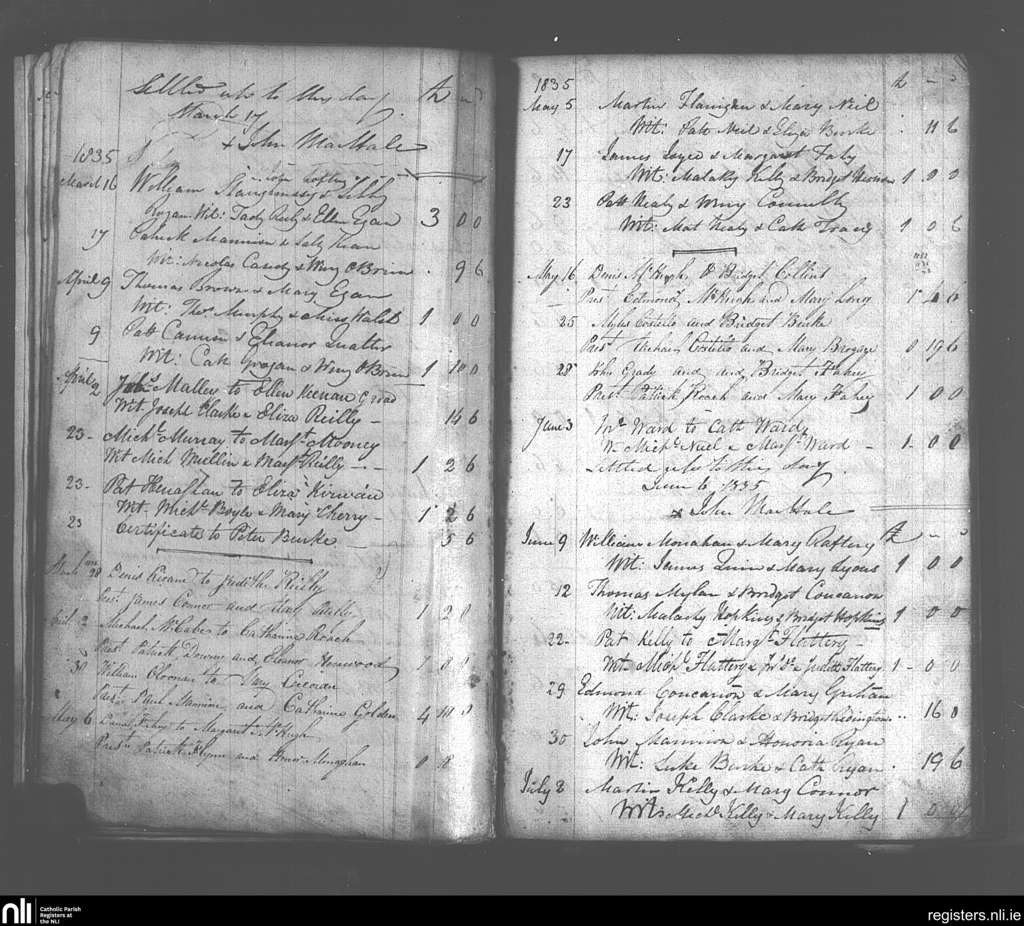 Settled up to this day £ - D
March 17
x John MacHale
1835
March 16 William Shaughnessy & Sibby
Ryan Wit: Tady Reily & Ellen Egan 3 0 0
17 Patrick Mannion & Sally
Wit: Nicolas Candy & Winy O'Brien . 9 6
April 9 Thomas Brown & Mary Egan
Wit: Thos Murphy & Miss Walsh 1 0 0
9 Patt Cannon & Eleanor
Wit: Cath Grogan & Winy O'Brien 1 10 0
April 2 Malley to Ellen Keenan
Wit Joseph Clarke & Eliza Reilly - 14 6
23 - Michl Murray to Margt Mooney
Wit Mich Mullin & Margt Reilly - 1 2 6
23 - Pat Heneghan to Eliza Kirwan
Wt. Michl Boyle & Mary Cherry - 1 2 6
23 Certificate to Peter Burke 5 6
28 Denis to Judith Reilly
Prest James Connor and Mary Reilly 1 2
2 Michael McCabe to Catharine Roach
Prest Patrick Downe and Eleanor 1
30 William to Mary
Prest Mannion and Catharine Golden 4 10 0
May 6 Fahy to Margaret McHugh
Prest Patrick Flynn and Monaghan
1835 £ - D
May 5 Martin Flanigan & Mary Neil
Wit: Patt Neil & Eliza Burke . 11 6
17 James Joyce & Margaret Fahy
Wit: Malaky Kelly & Bridget 1 0 0
23 Patt Healy & Winy Connolly
Wit: Mat Healy & Cath Tracy 1 0 6
May 16 Denis McHugh & Bridget Collins
Prest Edmond McHugh and Mary Long 1
25 Myles Costello and Bridget Burke
Prest Michael Costello and Mary 0 19 6
28 John Grady and and Bridget Fahey
Prest Patrick Roach and Mary Fahey 1 0 0
June 3 Wm Ward to Cath Ward
Wt Michl Neil & Margt Ward - 1 - 0 0
Settled up to this day
June 6 1835
x John MacHale
June 9 William Monahan & Mary Raftery £ - D
Wit: James Quin & Mary Lyons 1 0 0
12 Thomas Mylan & Bridget Concanon
Wit: Malachy Hopkins & Bridget Hopkins 1 0 0
22 - Pat Kelly to Margt Flattery -
Wt Michl Flattery & & Judith Flattery 1 - 0 0
29 Edmond Concanon & Mary
Wit: Joseph Clarke & Bridget Redington .. 16 0
30 John Mannion & Honoria Ryan
Wit: Luke Burke & Cath Ryan . 19 6
July 2 Martin Kelly & Mary Connor
Wit: Michl Kelly & Mary Kelly 1 0
nli
Catholic Parish
Registers at
the NLI
registers.nli.ie